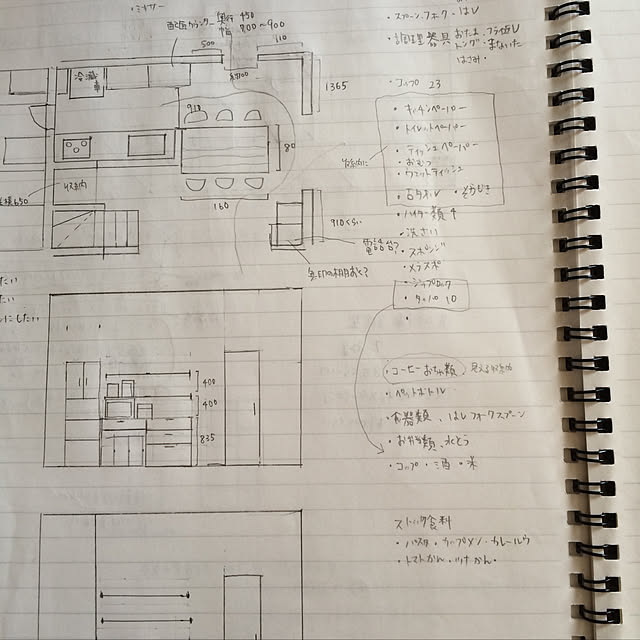 ミキサー
配膳カウンター 奥行 450
幅 800〜900
500
110
冷蔵庫
1365
910
80
収納
160
650
910くらい
電話台?
無印の棚おく?
たい
たい
にしたい
400
400
835
・スプーン、フォーク・はし
・調理器具 おたま、フライ返し
トング・まないた
はさみ・
・コップ 23
・キッチンペーパー
・トイレットペーパー
・ティッシュペーパー
・おむつ
・ウエットティッシュ
・ハイター類 4
・洗ざい
・スポンジ
・メラスポ
・ジップロック
・タッパ 10
・コーヒーお茶類
・ペットボトル
・食器類、はしフォークスプーン
・お弁当類、水とう
・コップ・酒・米
ストック食料
・パスタ・カップメン・カレールウ
・トマトかん・ツナかん・